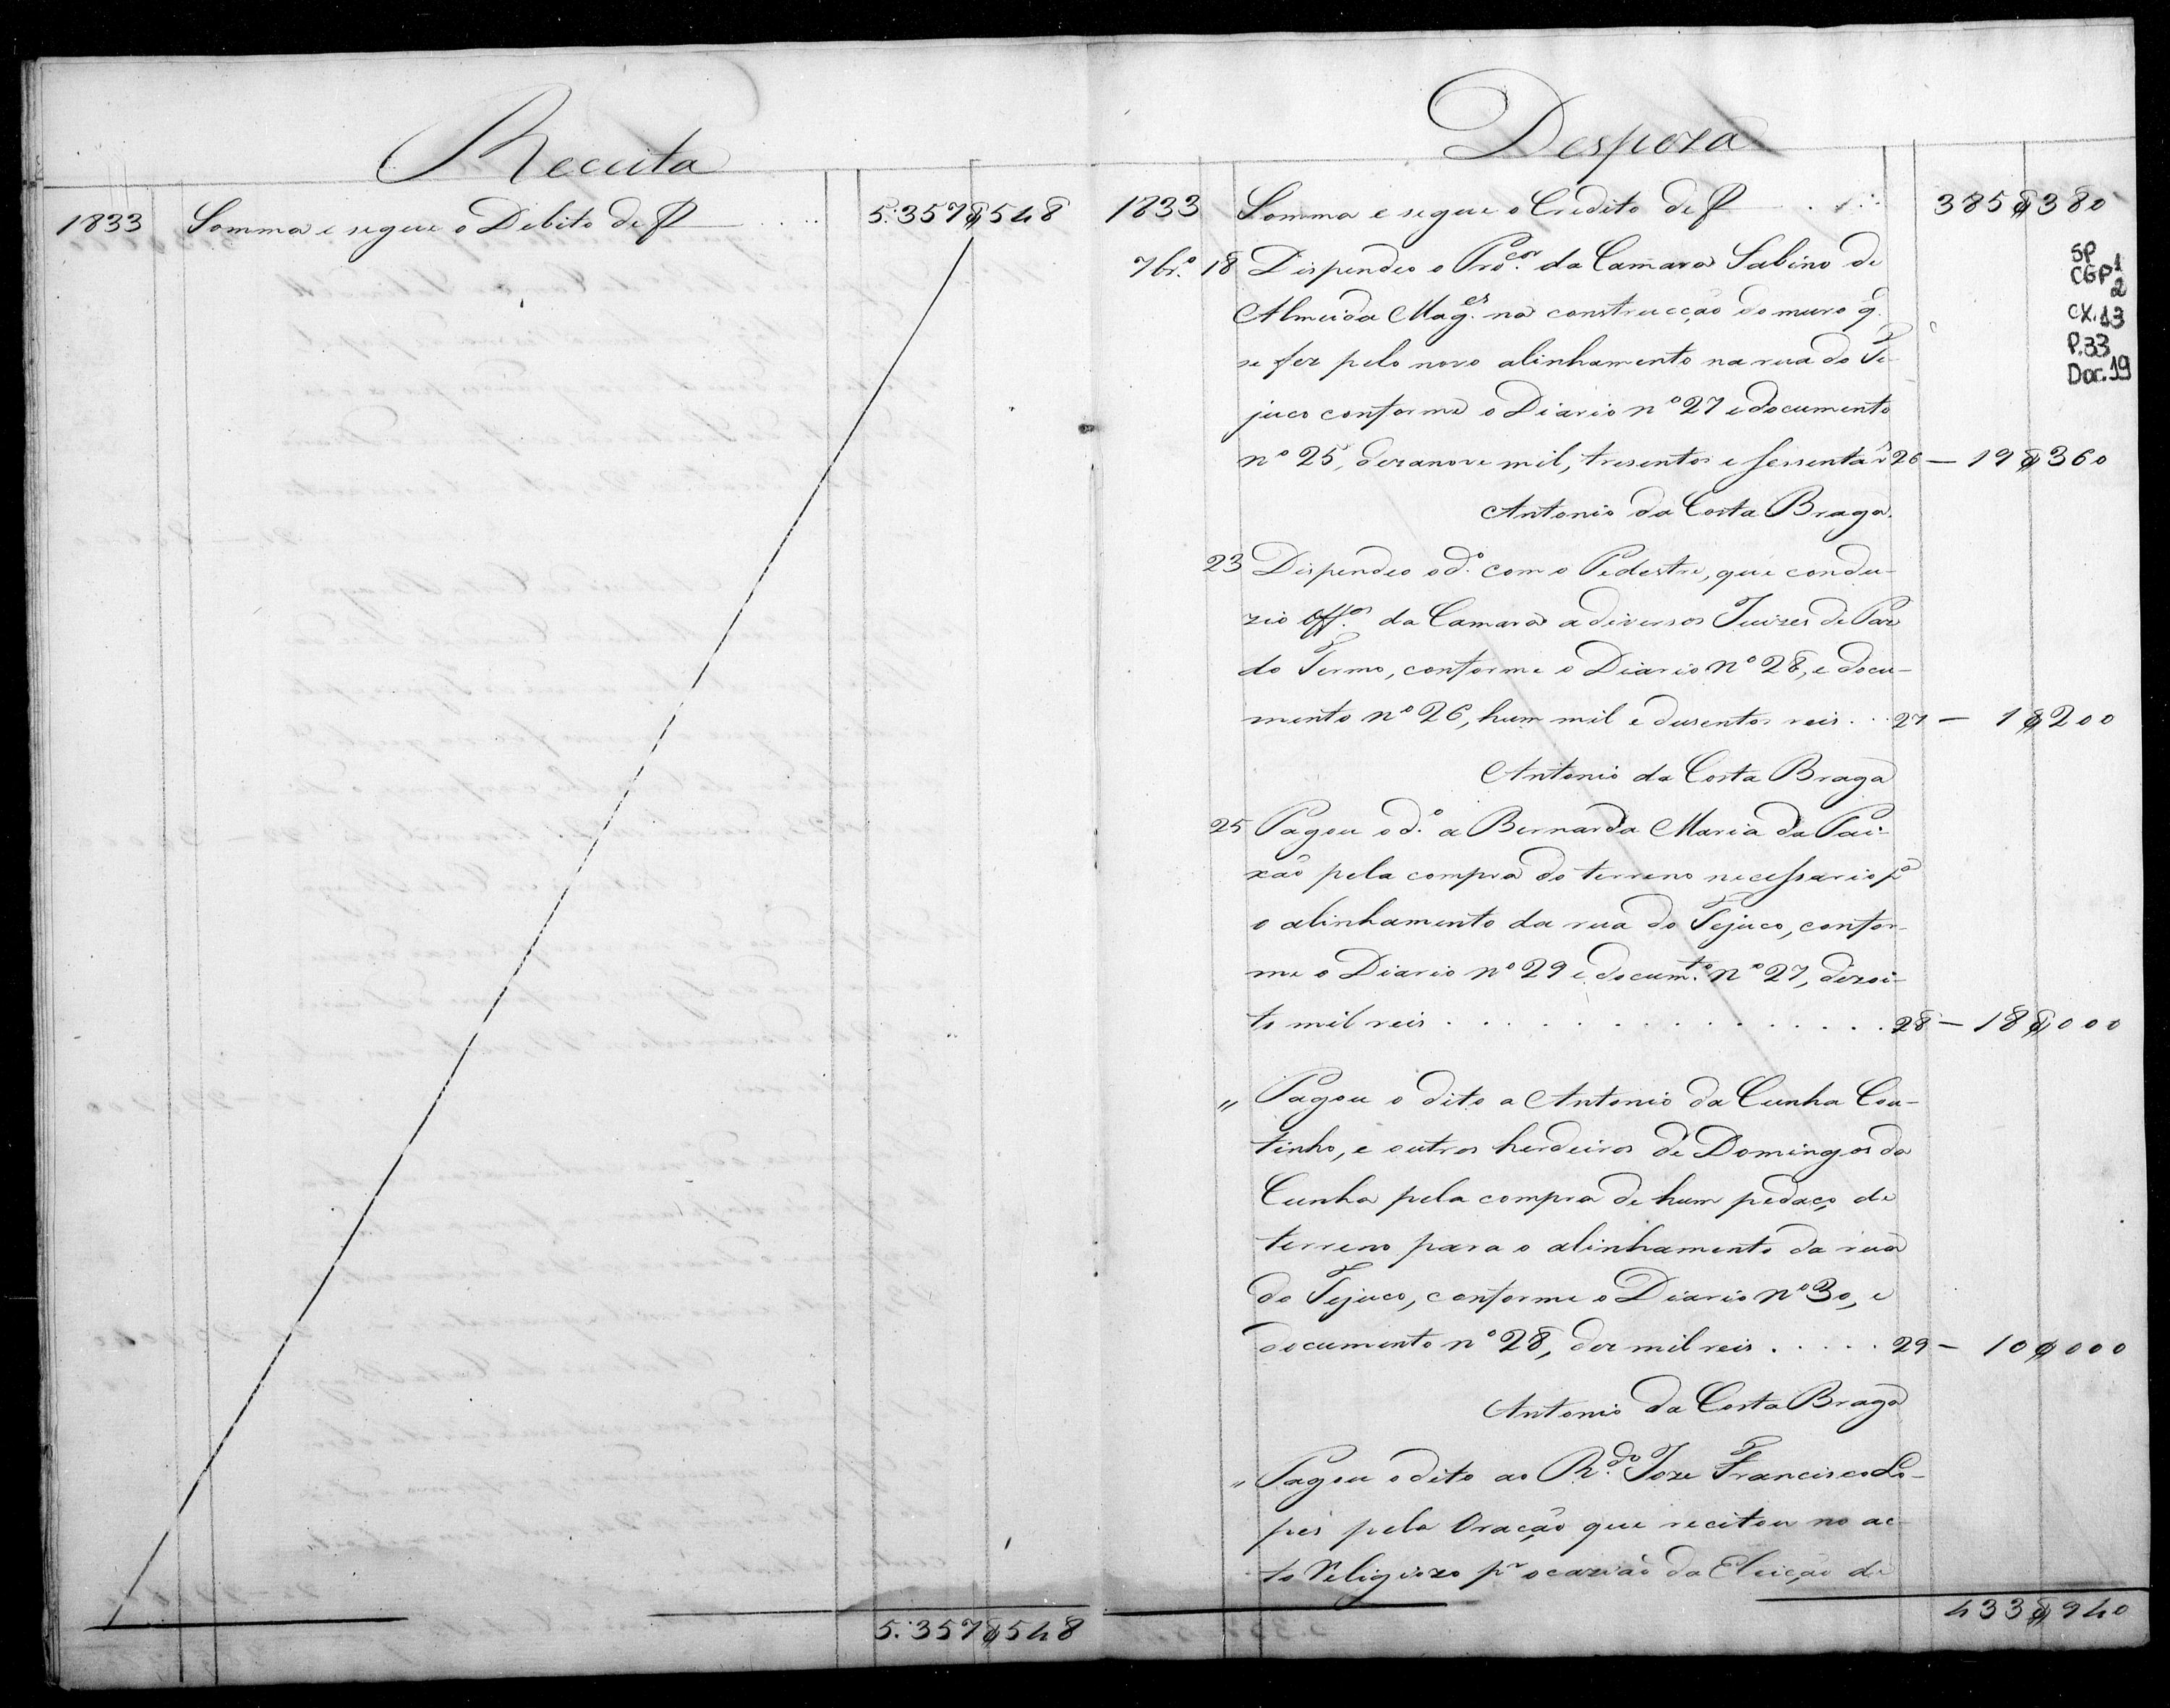 Receita
1833 Somma e segue o Debito de f 5:357$548
5:357$548
Despeza
1833 Somma e segue o Credito de f 385$380
7br.º 18 Dispendeo o Pro.cor da Camara Sabino de
Almeida Mag.es na construcção do muro q.
se fez pelo novo alinhamento na rua do Te-
juco conforme o Diario nº 27 e documento
nº 25, dezanove mil, tresentos e sessenta r 26 — 19$360
Antonio da Costa Braga.
23 Dispendeo o d.º com o Pedestre, que condu-
zio Off.os da Camara a diversos Juizes de Paz
do Termo, conforme o Diario Nº 28, e docu-
mento nº 26, hum mil e dusentos reis . . 27 — 1$200
Antonio da Costa Braga
25 Pagou o d.º a Bernarda Maria da Pai-
xão pela compra do terreno necessario pª
o alinhamento da rua do Tejuco, confor-
me o Diario nº 29 e docum.to Nº 27, dezoi-
to mil reis . . . . . . . . . . . . . . 28 — 18$000
" Pagou o dito a Antonio da Cunha Cou-
tinho, e outros herdeiros de Domingos da
Cunha pela compra de hum pedaço de
terreno para o alinhamento da rua
do Tejuco, conforme o Diario Nº 30, e
documento nº 28, dez mil reis . . . . . 29 — 10$000
Antonio da Costa Braga
" Pagou o dito ao R.do Joze Francisco Lo-
pes pela Oração que recitou no ac-
to Religiozo pr ocazião da Eleição de
433$940
SP
CGP 1
2
CX.13
P.33
Doc.19